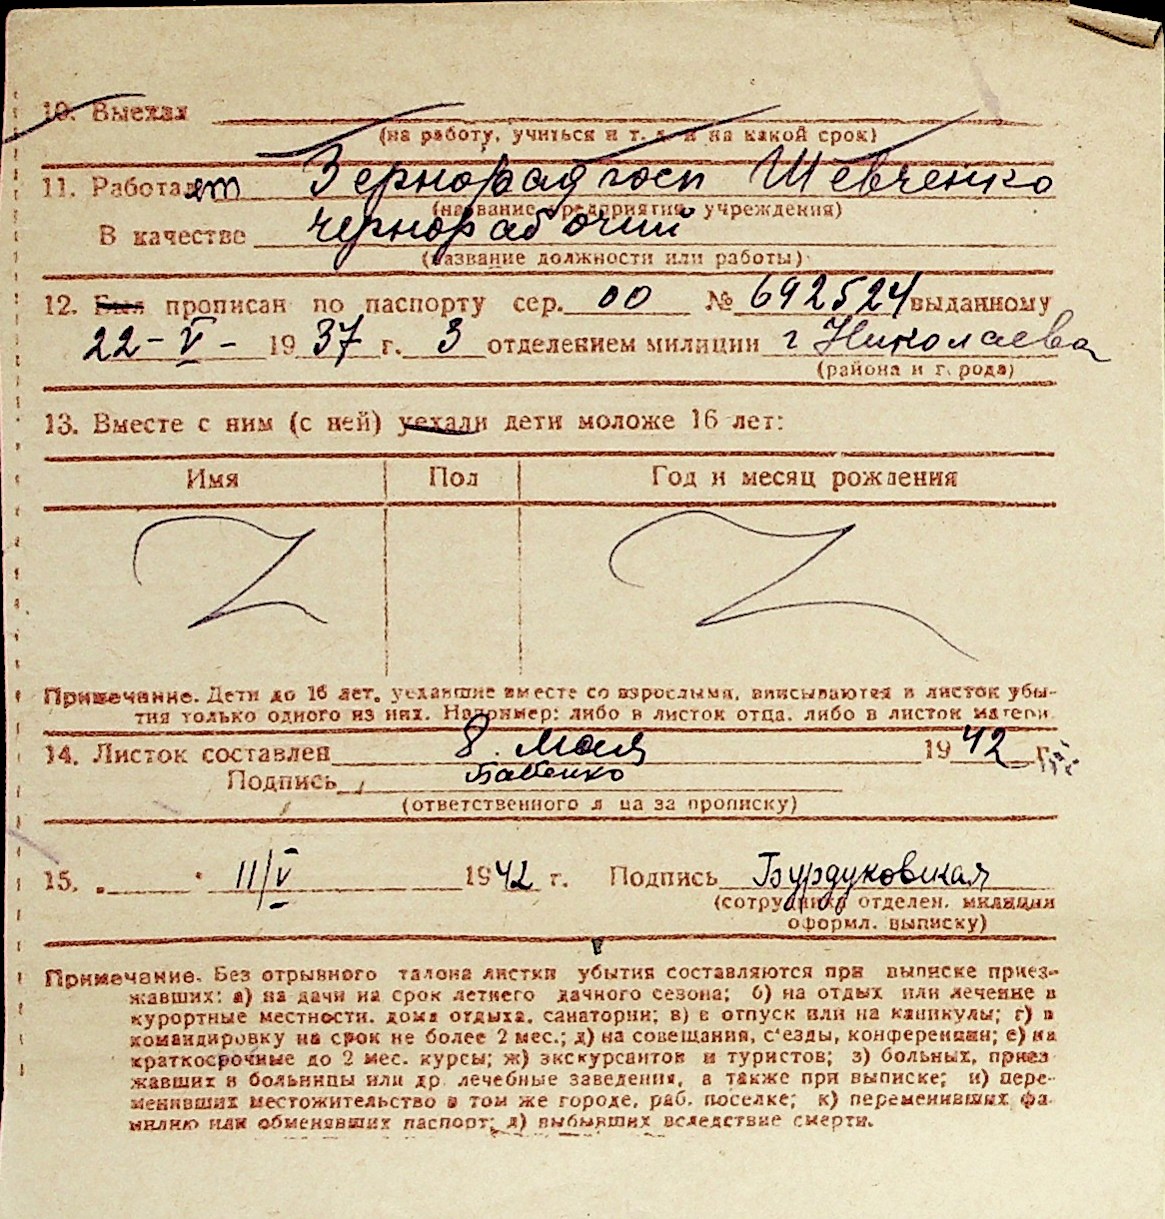 10. Выехал
(на работу, учиться и т. д. и на какой срок)
11. Работает Зернорадгосп Шевченко
(название предприятия, учреждения)
В качестве чернорабочий
(название должности или работы)
12. Был прописан по паспорту сер. оо № 692524 выданному
22-V- 1937 г. 3 отделением милиции г Николаева
(района и города)
13. Вместе с ним (с ней) уехали дети моложе 16 лет:
Имя Пол Год и месяц рождения
Z Z
Примечание. Дети до 16 лет, уехавшие вместе со взрослыми, вписываются в листок убы-
тия только одного из них. Например: либо в листок отца, либо в листок матери.
14. Листок составлен 8. мая 1942 г.
Подпись Бабенко
(ответственного лица за прописку)
15. 11/V 1942 г. Подпись Бурдуковская
(сотрудника отделен. милиции
оформл. выписку)
Примечание. Без отрывного талона листки убытия составляются при выписке приез-
жавших: а) на дачи на срок летнего дачного сезона; б) на отдых или лечение в
курортные местности, дома отдыха, санатории; в) в отпуск или на каникулы; г) в
командировку на срок не более 2 мес.; д) на совещания, с'езды, конференции; е) на
краткосрочные до 2 мес. курсы; ж) экскурсантов и туристов; з) больных, приез
жавших в больницы или др лечебные заведения, а также при выписке; и) пере-
менивших местожительство в том же городе, раб. поселке; к) переменивших фа-
милию или обменявших паспорт; л) выбывших вследствие смерти.